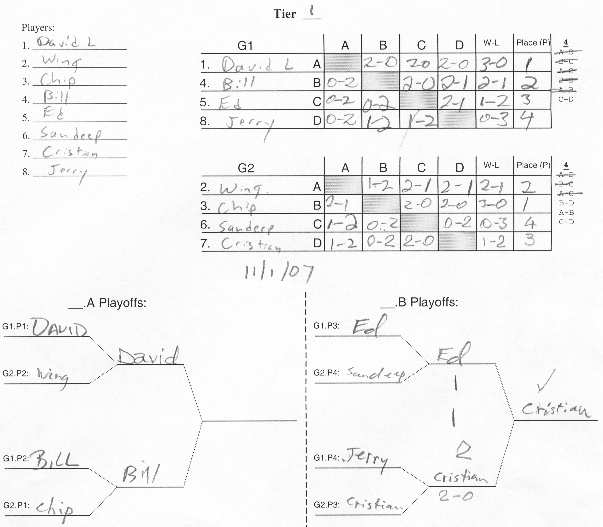 Tier 1
Players:
1. David L
2. Wing
3. Chip
4. Bill
5. Ed
6. Sandeep
7. Cristian
8. Jerry
G1 A B C D W-L Place (P) 4
1. David L A 2-0 20 2-0 3-0 1
4. Bill B 0-2 2-0 2-1 2-1 2
5. Ed C 0-2 0-2 2-1 1-2 3
8. Jerry D 0-2 1-2 1-2 0-3 4
C-D
G2 A B C D W-L Place (P) 4
2. Wing A 1-2 2-1 2-1 2-1 2
3. Chip B 2-1 2-0 2-0 3-0 1
6. Sandeep C 1-2 0-2 0-2 0-3 4
7. Cristian D 1-2 0-2 2-0 1-2 3
B-D
A-B
C-D
11/1/07
__.A Playoffs:
G1.P1: DAVID
David
G2.P2: Wing
G1.P2: BILL
Bill
G2.P1: Chip
__.B Playoffs:
G1.P3: Ed
Ed
G2.P4: Sandeep
1
1
2
Cristian
G1.P4: Jerry
Cristian
2-0
G2.P3: Cristian